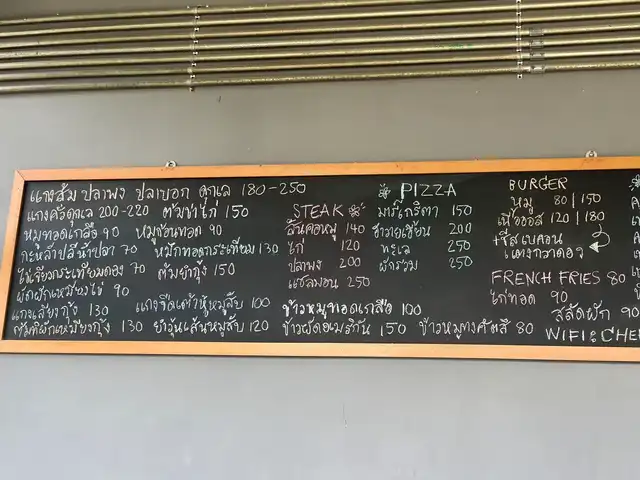 แกงส้ม ปลาพง ปลาบอก ดุกเล 180-250
แกงคั่วดุกเล 200-220 ต้มข่าไก่ 150
หมูทอดเกลือ 90 หมูช้อนทอด 90
กะหล่ำปลีน้ำปลา 70 หมึกทอดกระเทียม 130
ไข่เจียวกระเทียมดอง 70 ต้มยำกุ้ง 150
ผัดผักเหมียงไข่ 90
แกงเลียงกุ้ง 130 แกงจืดเต้าหู้หมูสับ 100
ต้มกะทิผักเหมียงกุ้ง 130 ยำวุ้นเส้นหมูสับ 120
STEAK
สันคอหมู 140
ไก่ 120
ปลาพง 200
แซลมอน 250
ข้าวหมูทอดเกลือ 100
ข้าวผัดอเมริกัน 150 ข้าวหมูทงคัตสึ 80
PIZZA
มาร์เกริตา 150
ฮาวายเอี้ยน 200
ทะเล 250
ผักรวม 250
BURGER
หมู 80 | 150
เนื้อออส 120 | 180
+ชีส เบคอน
แตงกวาดอง
FRENCH FRIES 80
ไก่ทอด 90
สลัดผัก 90
WIFI : CHE